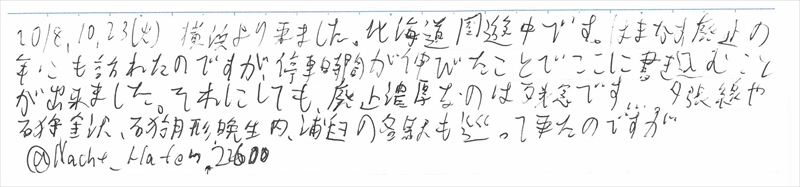 2018.10.23(火) 横浜より来ました。北海道周遊中です。はまなす廃止の
年にも訪れたのですが、停車時間が伸びたことでここに書き込むこと
が出来ました。それにしても、廃止濃厚なのは残念です… 夕張線や
石狩金沢、石狩月形、晩生内、浦臼の各駅も巡って来たのですが